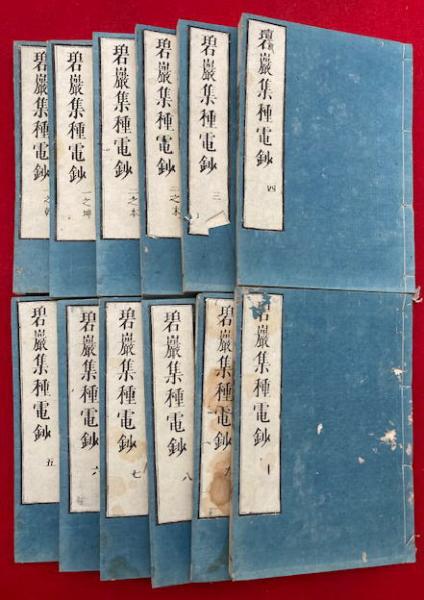 碧巖集種電鈔 一之乾
碧巖集種電鈔 一之坤
碧巖集種電鈔 二之本
碧巖集種電鈔 二之末
碧巖集種電鈔 三
碧巖集種電鈔 四
碧巖集種電鈔 五
碧巖集種電鈔 六
碧巖集種電鈔 七
碧巖集種電鈔 八
碧巖集種電鈔 九
碧巖集種電鈔 十